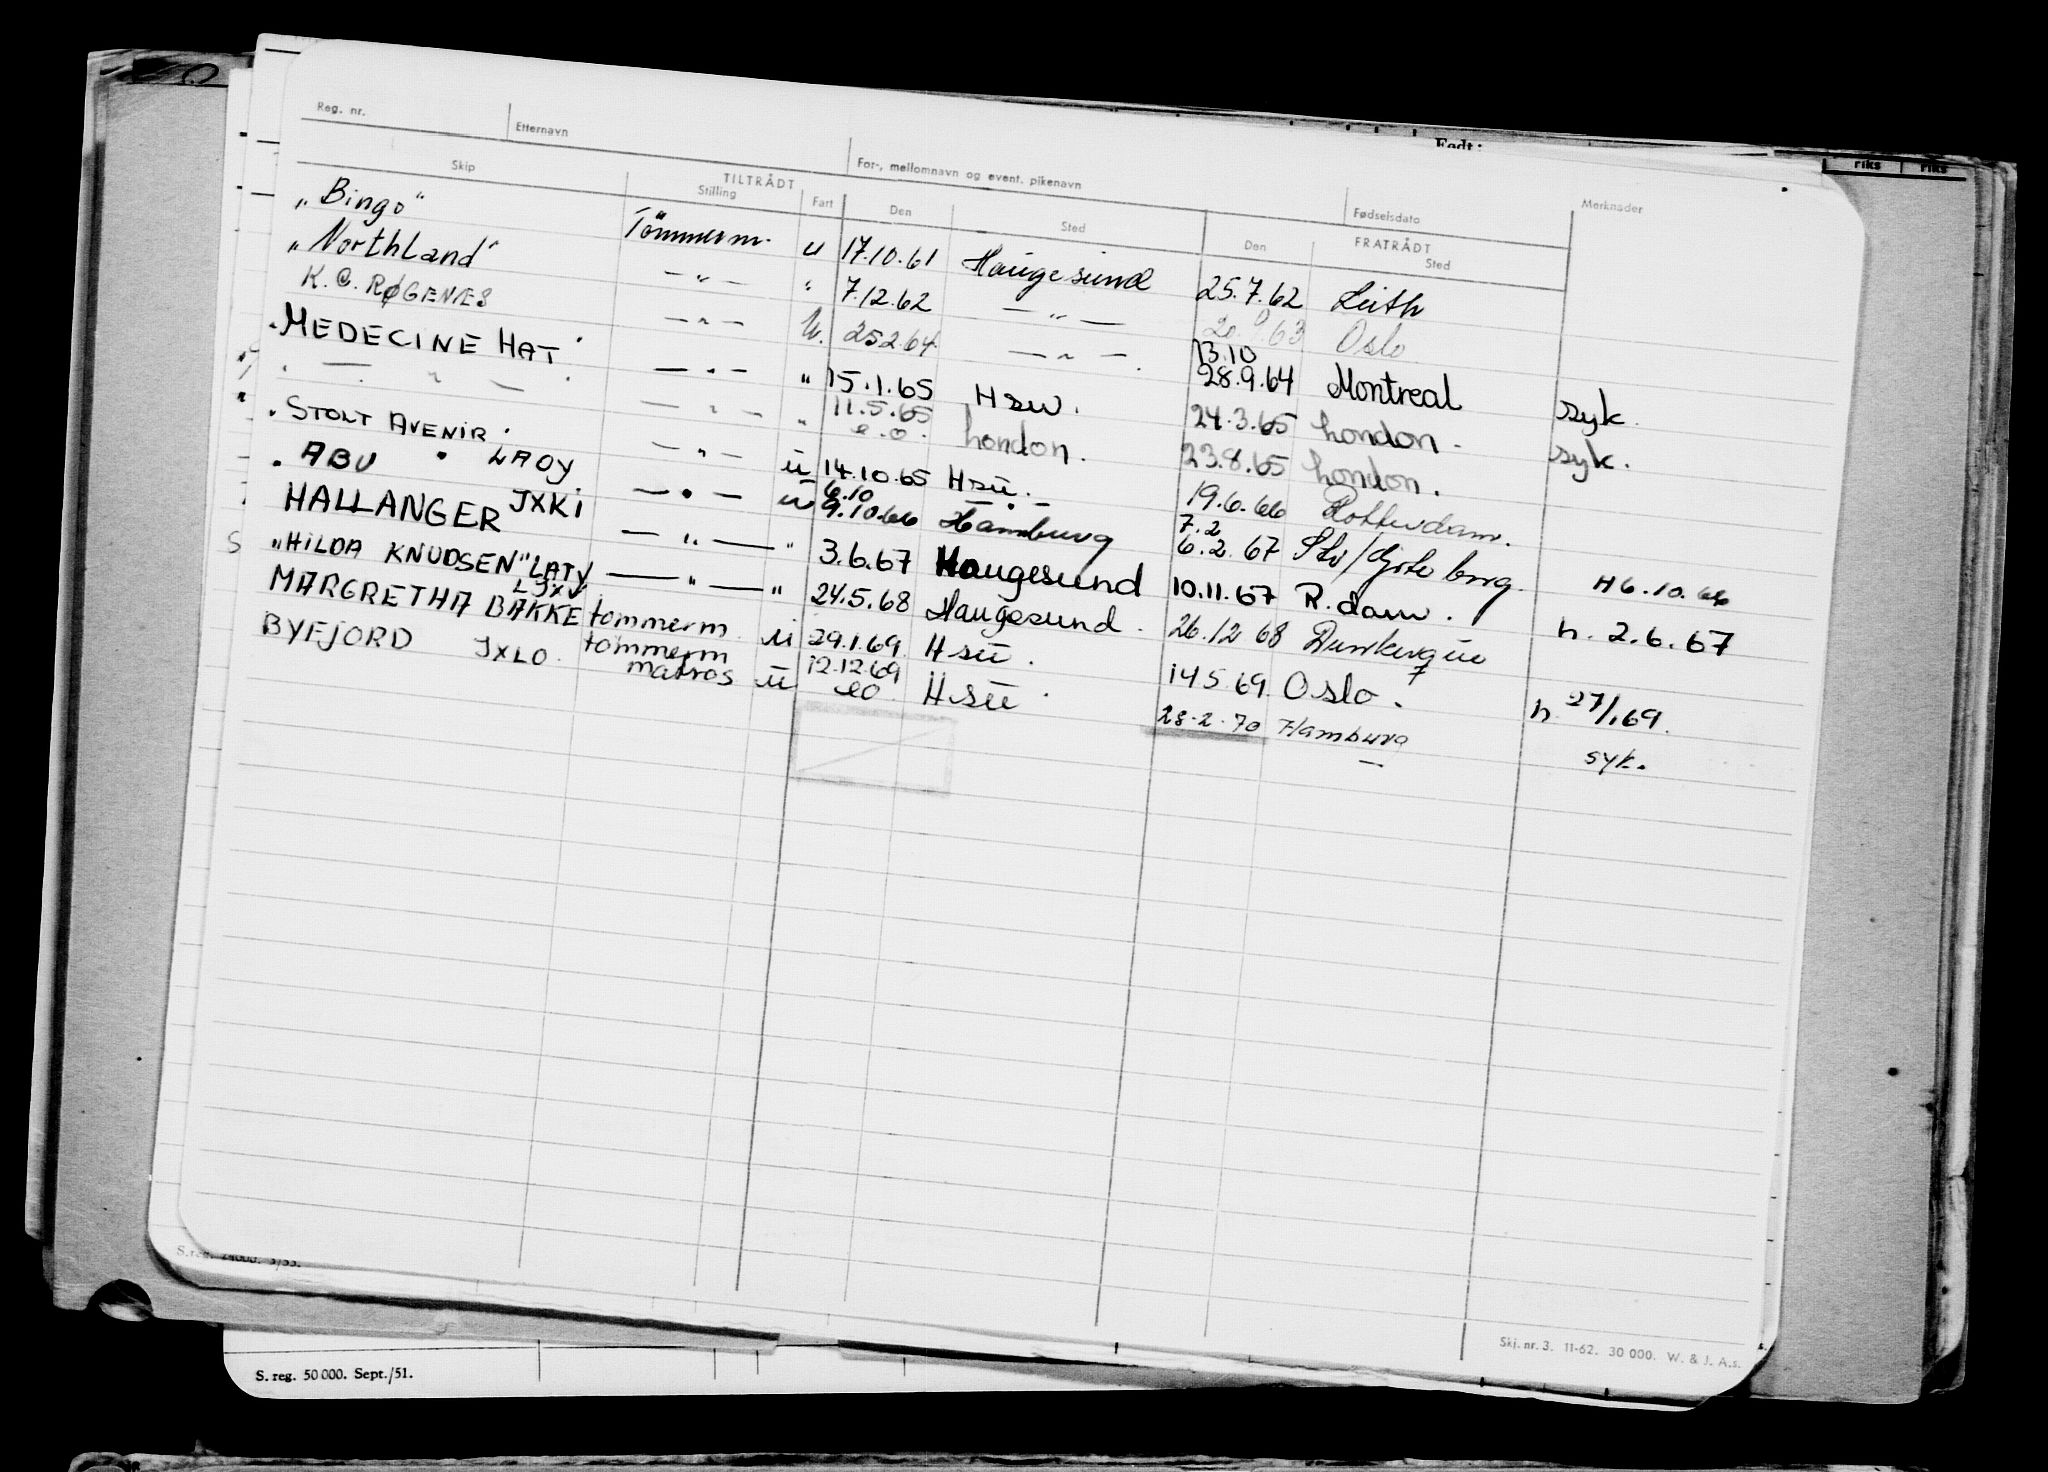 Født:
riks riks
Reg. nr. Etternavn For-, mellomnavn og event. pikenavn Fødselsdato Merknader
Skip TILTRÅDT Stilling Fart Den Sted Den FRATRÅDT Sted
„Bingo" Tömmerm. u 17.10.61 Haugesund 25.7.62 Leith
„Northland" —"— " 7.12.62 —"— 63 Oslo
K. C. RØGENÆS —"— u. 25.2.64 —"— 13.10
28.9.64 Montreal syk.
"MEDECINE HAT" —"— " 15.1.65 Hsu. 24.3.65 London. syk.
" — " — " —"— " 11.5.65 London. 23.8.65 London.
e.o.
"STOLT AVENIR" —"— ü 14.10.65 Hsü. 19.6.66 Rotterdam.
"ABU " LAOY —"— ü 6.10
9.10.66 Hamburg 7.2
6.2.67 /Gøteborg. H 6.10.66
HALLANGER JXKI —"— " 3.6.67 Haugesund 10.11.67 R.dam. h. 2.6.67
S „HILDA KNUDSEN" LATV —"— " 24.5.68 Haugesund. 26.12 68 Dunkerque
MARGRETHA BAKKE LJXV tømmerm. ü 29.1.69 Hsü. 14.5.69 Oslo. h 27/1.69.
BYFJORD JXLO. tømmerm
matros ü 12.12.69
eo Hsü. 28.2.70 Hamburg syk.
S.reg. 24000. 3/55.
Skj. nr. 3. 11-62. 30 000. W. & J. A.s.
S. reg. 50 000. Sept./51.